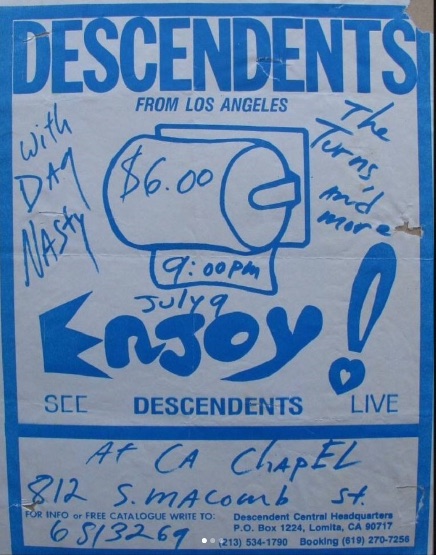 DESCENDENTS
FROM LOS ANGELES
with
DAG
NASTY
The
Turns,
and
more
$6.00
9:00pm
July 9
Enjoy!
SEE DESCENDENTS LIVE
At CA ChapEL
812 S. MAComb St.
FOR INFO or FREE CATALOGUE WRITE TO:
Descendent Central Headquarters
P.O. Box 1224, Lomita, CA 90717
6513269
(213) 534-1790 Booking (619) 270-7256